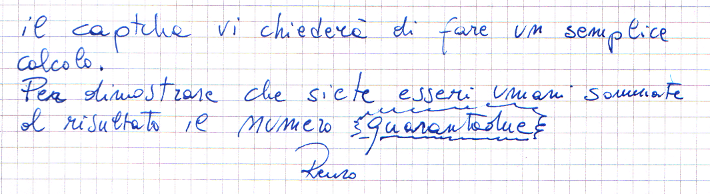 il captcha vi chiederà di fare un semplice
calcolo.
Per dimostrare che siete esseri umani sommate
al risultato il numero {quarantadue}
Renzo